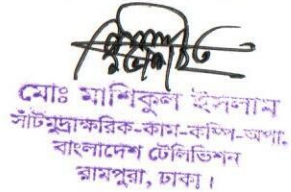 মোঃ মাশিকুল ইসলাম
সাঁটমুদ্রাক্ষরিক-কাম-কম্পি-অপা,
বাংলাদেশ টেলিভিশন
রামপুরা, ঢাকা।